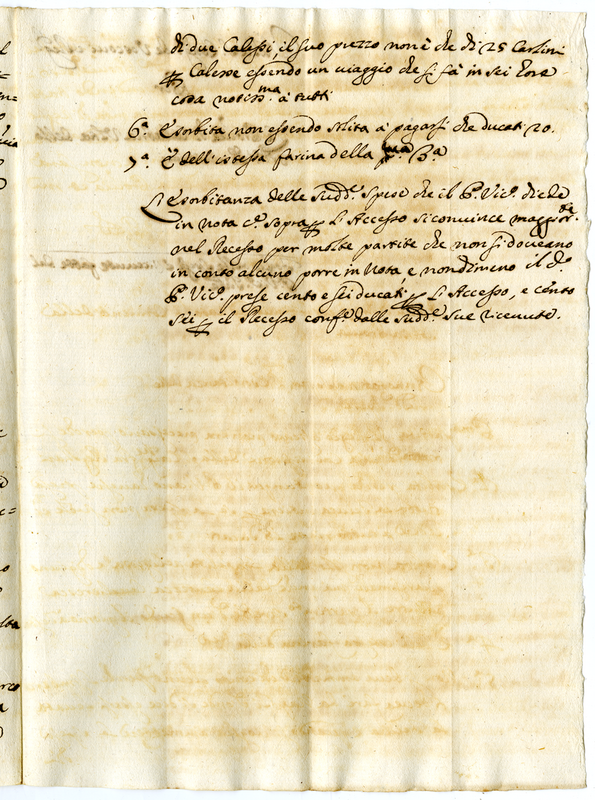 di due Calessi il suo prezzo non è che di 25 Carlini
Calesse essendo un viaggio che si fà in sei hore
cosa notiss.ma à tutti
6.a Esorbita non essendo solita à pagarsi che ducati 20.
7.a È dell'istessa farina della 3.a
L'Esorbitanza delle sudd.e spese che il P. Vic.o diede
in nota c.e sopra L'Accesso si convince maggior.te
nel Recesso per molte partite che non si doveano
in conto alcuno porre in Nota, e nondimeno il d.o
P. Vic.o prese cento e sei ducati L'Accesso, e cento
sei il Recesso conf.e dalle sudd.e sue ricevute.